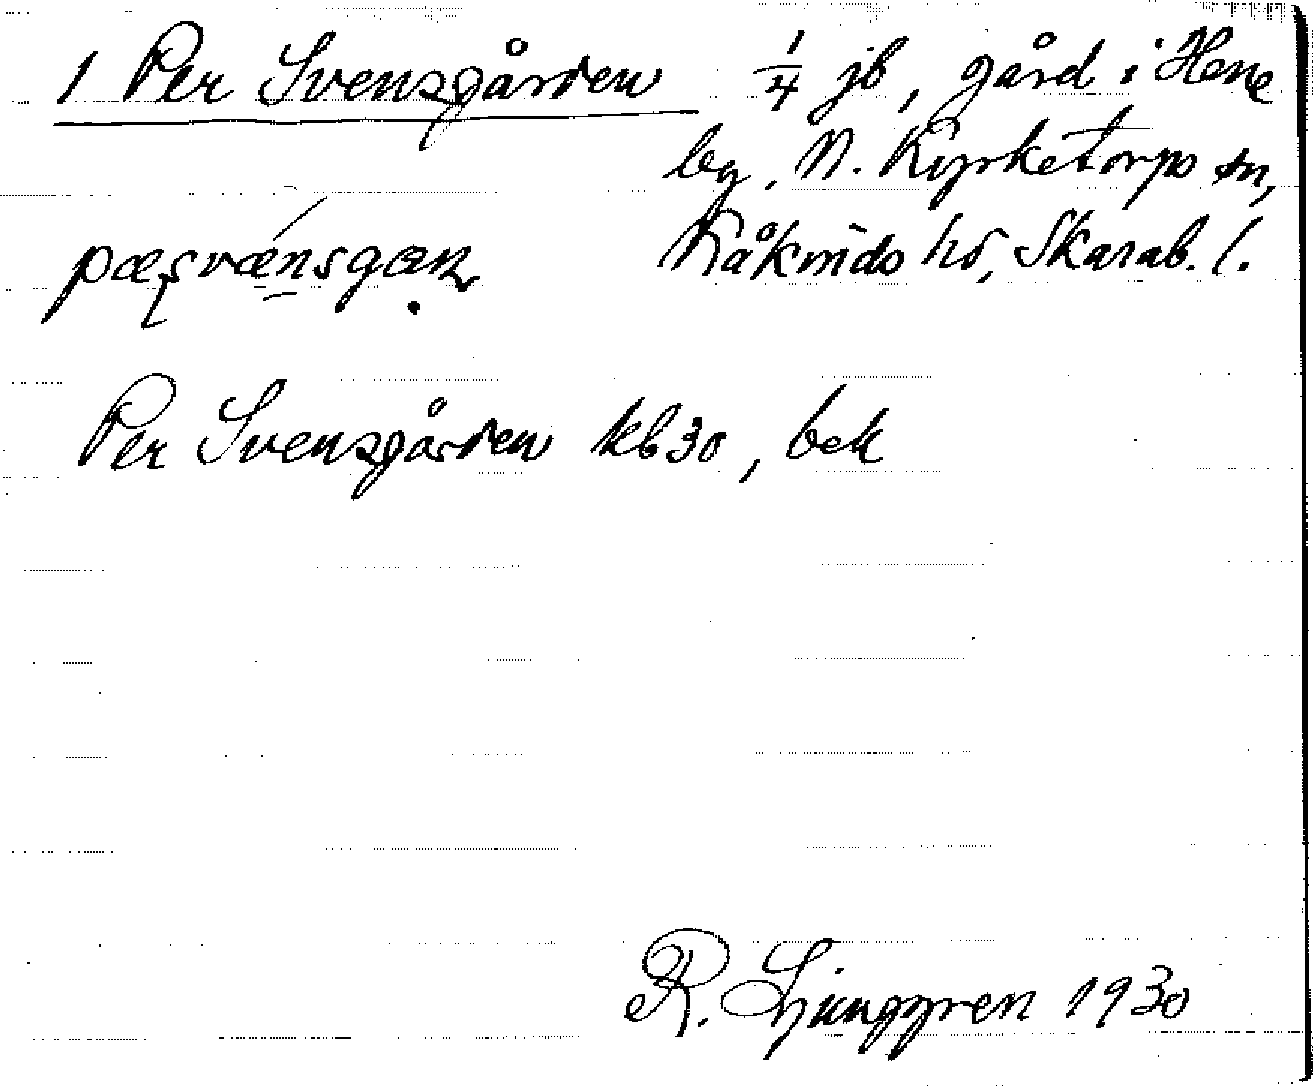 1 Per Svensgården 1/4 jb, gård i Hene
by, N. Kyrketorps sn,
Kåkinds hd, Skarab. l.
Per Svensgården kb 30, bek
R. Ljunggren 1930